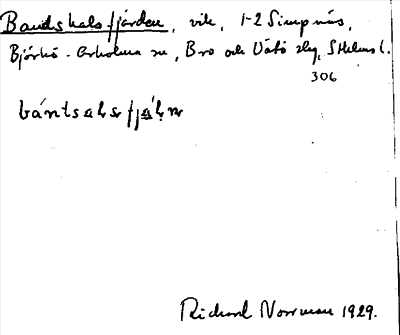 Bandshalsfjärden, vik, 1-2 Simpnäs,
Björkö-Arholma sn, Bro och Vätö slg, Sthlms l.
306
Richard Norrman 1929.